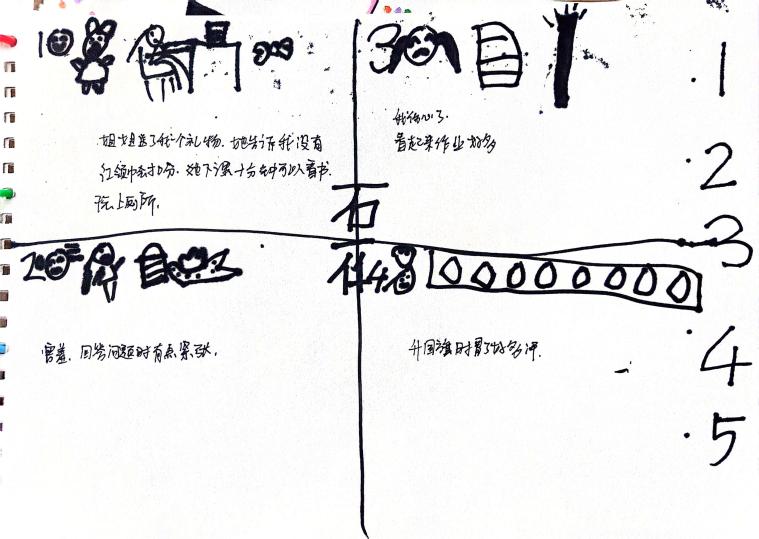 1
姐姐送了我一个礼物. 她告诉我没有
红领巾会扣分. 她下课十分钟可以看书.
玩.上厕所.
3
我伤心了.
看起来作业好多
石
一
什
2
害羞. 回答问题时有点紧张.
4
升国旗时冒了好多汗.
1
2
3
4
5